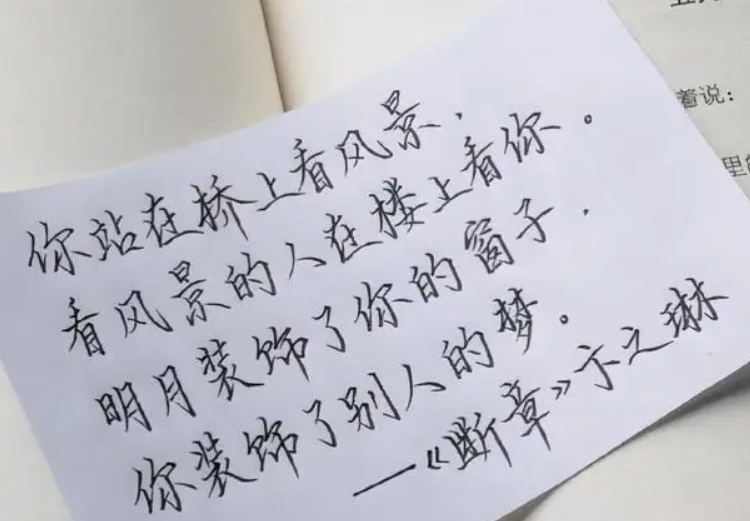 你站在桥上看风景,
看风景的人在楼上看你。
明月装饰了你的窗子,
你装饰了别人的梦。
——《断章》卞之琳
着说:
里